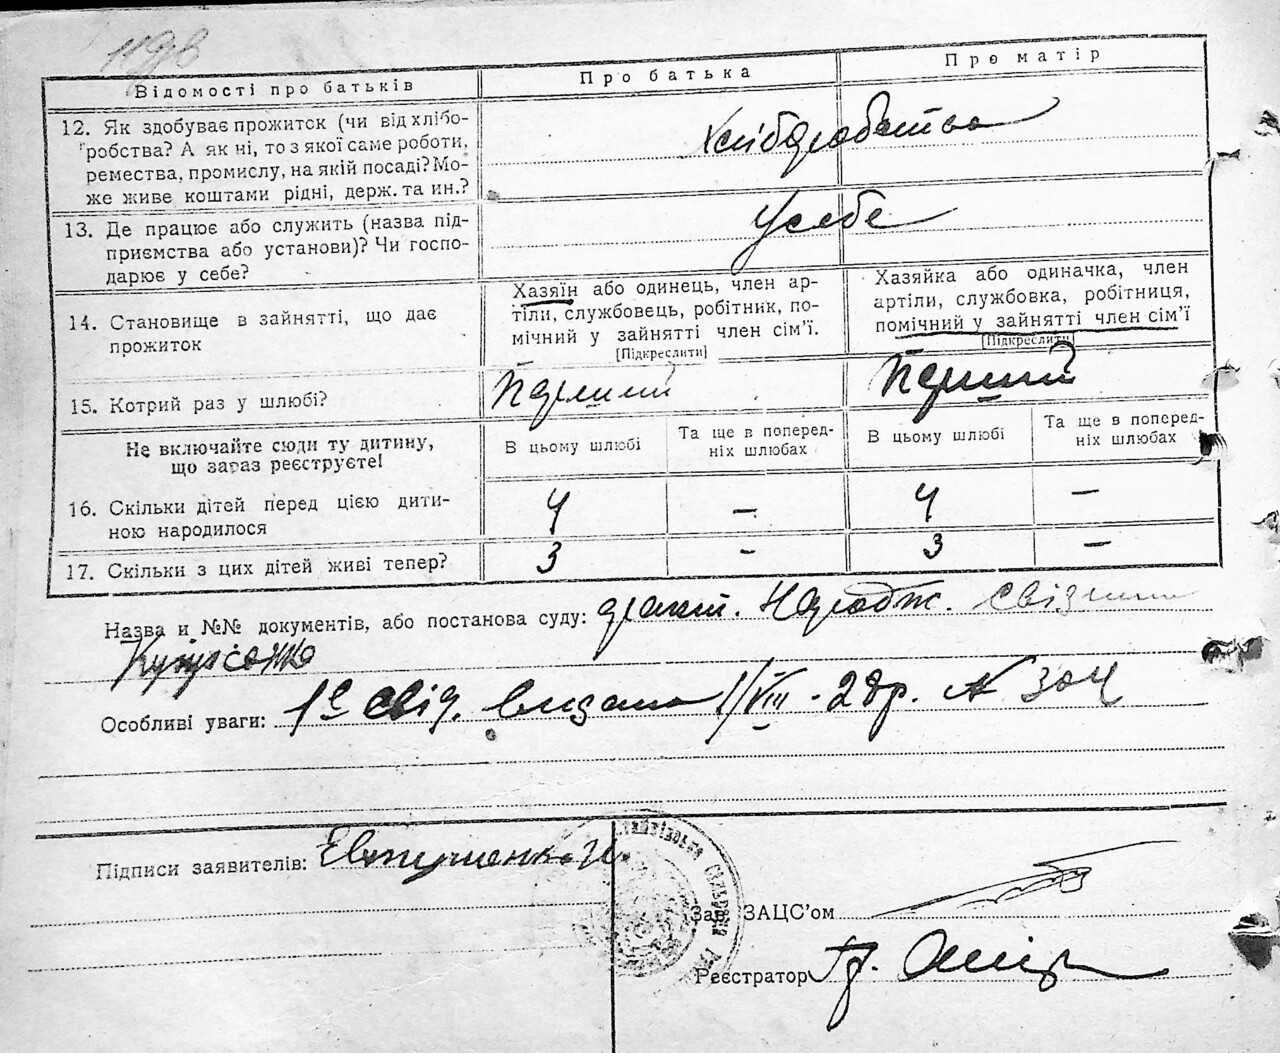 Відомості про батьків
Про батька
Про матір
12. Як здобуває прожиток (чи від хлібо-
робства? А як ні, то з якої саме роботи,
ремества, промислу, на якій посаді? Мо-
же живе коштами рідні, держ. та ин.?
Хліборобство
13. Де працює або служить (назва під-
приємства або установи)? Чи госпо-
дарює у себе?
У себе
14. Становище в зайнятті, що дає
прожиток
Хазяїн або одинець, член ар-
тіли, службовець, робітник, по-
мічний у зайнятті член сім'ї.
[Підкреслити]
Хазяйка або одиначка, член
артіли, службовка, робітниця,
помічний у зайнятті член сім'ї
[Підкреслити]
15. Котрий раз у шлюбі?
Перший
Перший
Не включайте сюди ту дитину,
що зараз реєструєте!
В цьому шлюбі
Та ще в поперед-
ніх шлюбах
В цьому шлюбі
Та ще в поперед-
ніх шлюбах
16. Скільки дітей перед цією дити-
ною народилося
4 — 4 —
17. Скільки з цих дітей живі тепер?
3 - 3 —
Назва и №№ документів, або постанова суду: Народж.
Особливі уваги: свід. видано 1/VIII - 28р. № 304
Підписи заявителів:
Зав. ЗАЦС'ом
Реєстратор